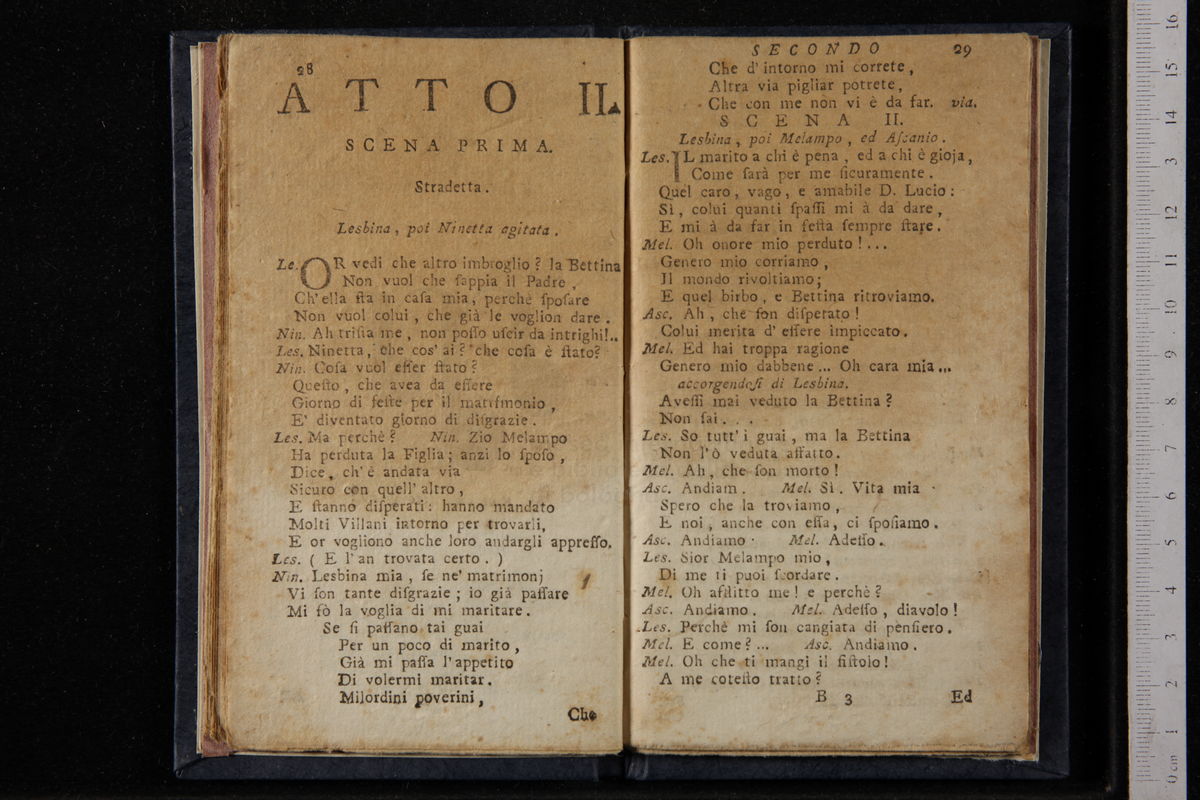 28
ATTO II.
SCENA PRIMA.
Stradetta.
Lesbina, poi Ninetta agitata.
Le. OR vedi che altro imbroglio? la Bettina
Non vuol che ſappia il Padre,
Ch'ella ſta in caſa mia, perchè ſpoſare
Non vuol colui, che già le voglion dare.
Nin. Ah triſta me, non poſſo uſcir da intrighi!..
Les. Ninetta, che cos' ai? che coſa è ſtato?
Nin. Coſa vuol eſſer ſtato?
Queſto, che avea da eſſere
Giorno di feſte per il matrimonio,
E' diventato giorno di diſgrazie.
Les. Ma perchè? Nin. Zio Melampo
Ha perduta la Figlia; anzi lo ſpoſo,
Dice, ch'è andata via
Sicuro con quell' altro,
E ſtanno diſperati: hanno mandato
Molti Villani intorno per trovarli,
E or vogliono anche loro andargli appreſſo.
Les. ( E l'an trovata certo. )
Nin. Lesbina mia, ſe ne' matrimonj
Vi ſon tante diſgrazie; io già paſſare
Mi fò la voglia di mi maritare.
Se ſi paſſano tai guai
Per un poco di marito,
Già mi paſſa l'appetito
Di volermi maritar.
Milordini poverini,
Che
SECONDO 29
Che d'intorno mi correte,
Altra via pigliar potrete,
Che con me non vi è da far. via.
SCENA II.
Lesbina, poi Melampo, ed Aſcanio.
Les. IL marito a chi è pena, ed a chi è gioja,
Come ſarà per me ſicuramente.
Quel caro, vago, e amabile D. Lucio:
Sì, colui quanti ſpaſſi mi à da dare,
E mi à da far in feſta ſempre ſtare.
Mel. Oh onore mio perduto!...
Genero mio corriamo,
Il mondo rivoltiamo;
E quel birbo, e Bettina ritroviamo.
Asc. Ah, che ſon diſperato!
Colui merita d'eſſere impiccato.
Mel. Ed hai troppa ragione
Genero mio dabbene... Oh cara mia...
accorgendoſi di Lesbina.
Aveſſi mai veduto la Bettina?
Non ſai...
Les. So tutt'i guai, ma la Bettina
Non l'ò veduta affatto.
Mel. Ah, che ſon morto!
Asc. Andiam. Mel. Sì. Vita mia
Spero che la troviamo,
E noi, anche con eſſa, ci ſpoſiamo.
Asc. Andiamo. Mel. Adeſſo.
Les. Sior Melampo mio,
Di me ti puoi ſcordare.
Mel. Oh afflitto me! e perchè?
Asc. Andiamo. Mel. Adeſſo, diavolo!
Les. Perchè mi ſon cangiata di penſiero.
Mel. E come?... Asc. Andiamo.
Mel. Oh che ti mangi il fiſtolo!
A me coteſto tratto?
B 3 Ed
0 cm 1 2 3 4 5 6 7 8 9 10 11 12 13 14 15 16